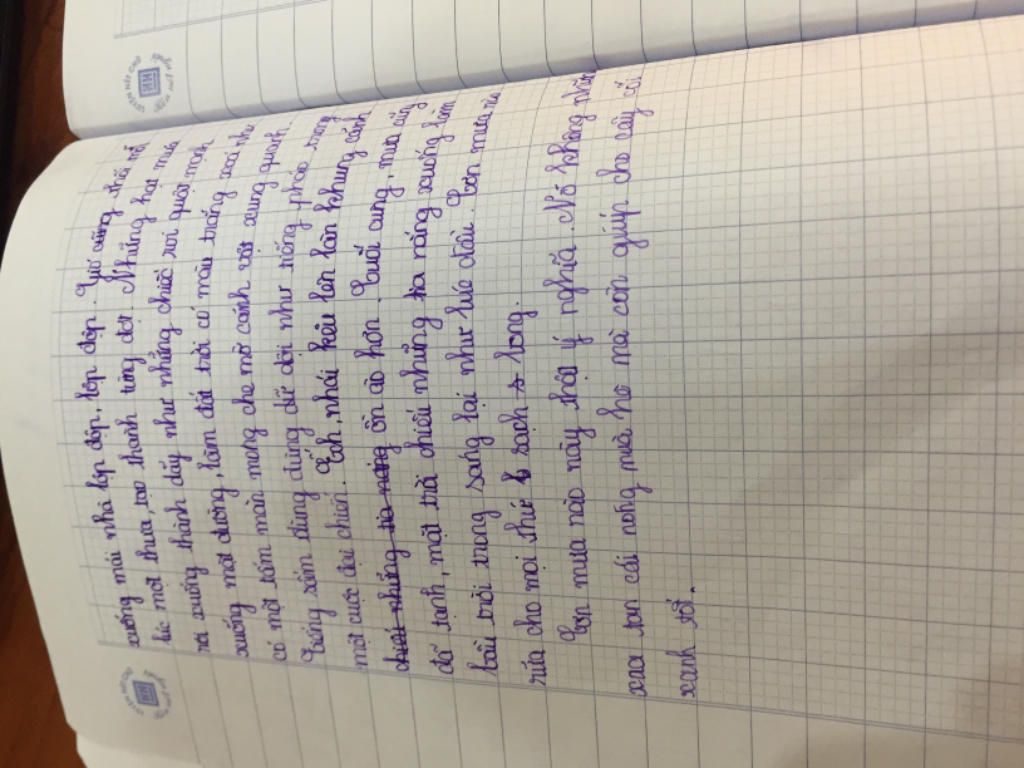 xuống mái nhà lộp độp, lộp độp. Gió cũng thổi mỗi
lúc một thưa, tạo thành từng đợt. Những hạt mưa
rơi xuống thành dãy như những chiếc roi quật mạnh
xuống mặt đường, làm đất trời có màu trắng xoá như
có một tấm màn mỏng che mờ cảnh vật xung quanh.
Tiếng sấm đùng đùng dữ dội như tiếng pháo trong
một cuộc đại chiến. Ếch, nhái kêu lên làm khung cảnh
chiếu những tia nắng ồn ào hơn. Cuối cùng, mưa cũng
đã tạnh, mặt trời chiếu những tia nắng xuống làm
bầu trời trong sáng lại như lúc đầu. Cơn mưa rào
rửa cho mọi thứ sạch bong.
Cơn mưa rào này thật ý nghĩa. Nó không những
xua tan cái nóng mùa hè mà còn giúp cho cây cối
xanh tốt.